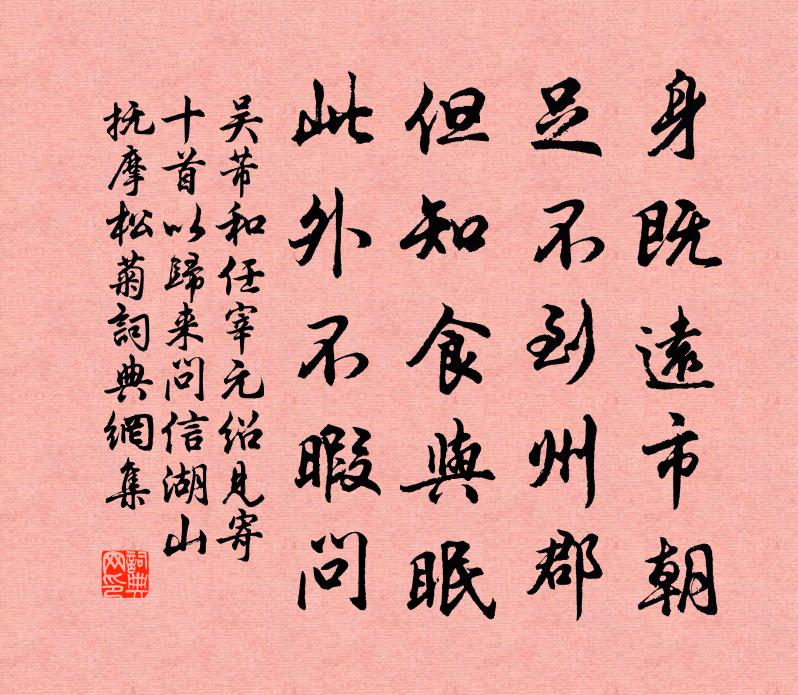 身既遠市朝
足不到州郡
但知食與眠
此外不暇問
吴芾和任宰元绍見寄
十首以歸来問信湖山
抚摩松菊詞典網集
詞典网印